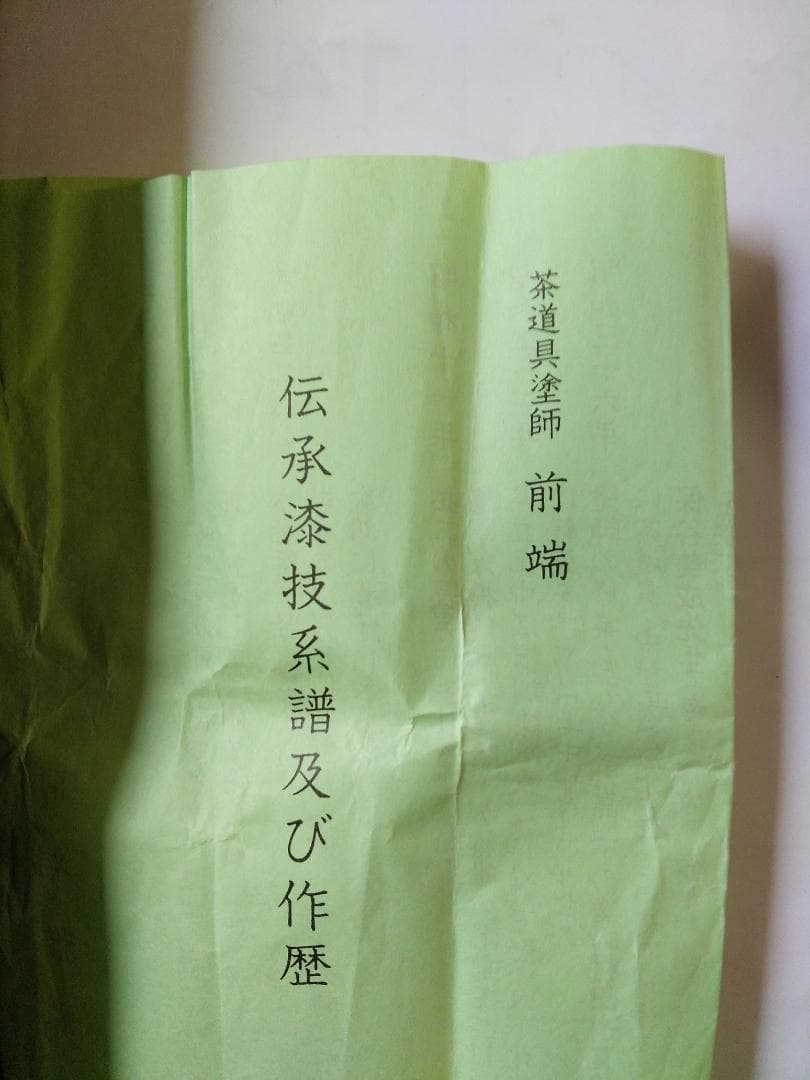 茶道具塗師 前端
伝承漆技系譜及び作歴